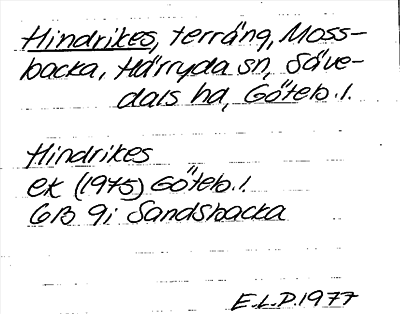 Hindrikes, terräng, Moss-
backa, Härryda sn, Säve-
dals hd, Göteb. l.
Hindrikes
ek (1975) Göteb. l.
6B 9i Sandsbacka
E.L.P. 1977